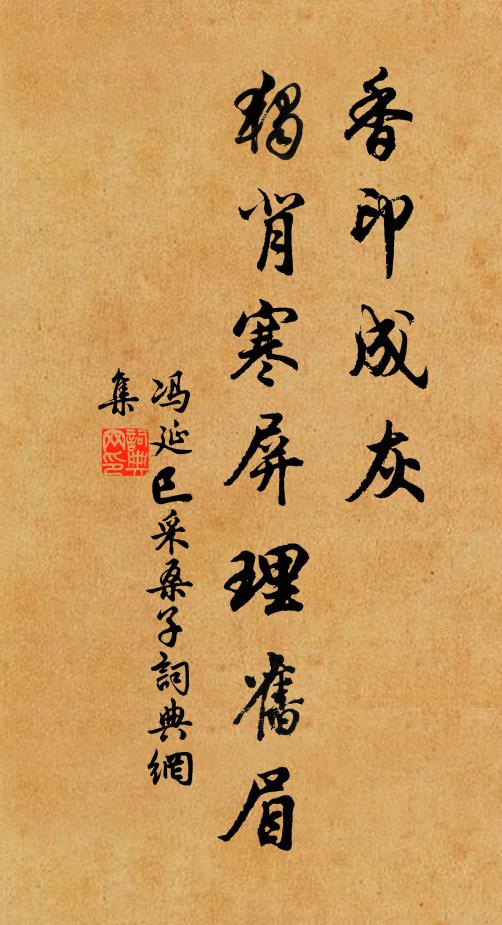 香印成灰
獨背寒屏理舊眉
冯延巳采桑子詞典網
集
詞典網印